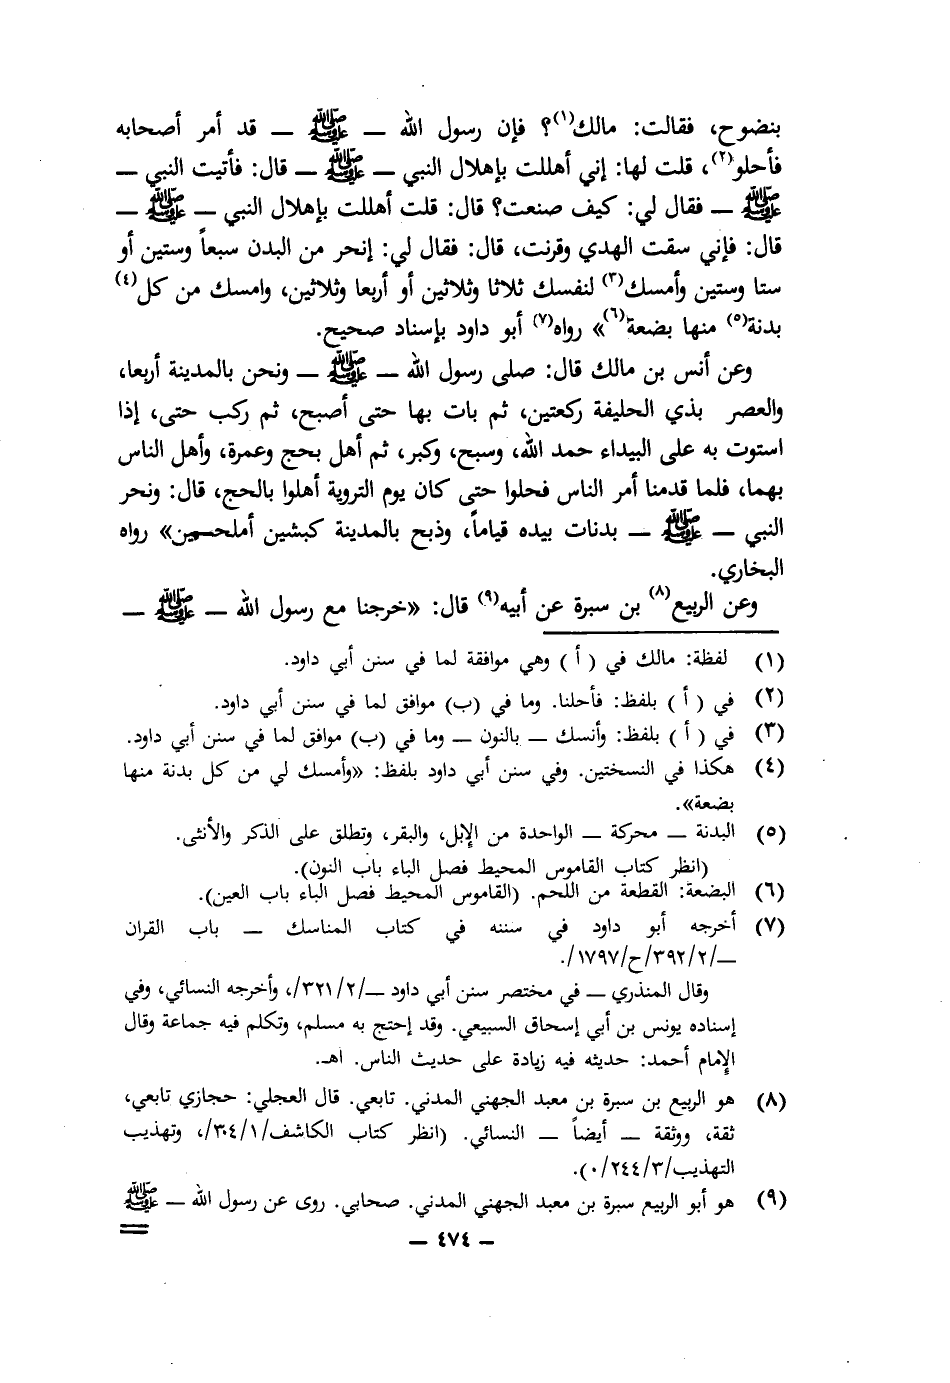 بنضوح، فقالت: مالك(١)؟ فإن رسول الله ــ ﷺ ــ قد أمر أصحابه
فأحلو(٢)، قلت لها: إني أهللت بإهلال النبي ــ ﷺ ــ قال: فأتيت النبي ــ
ﷺ ــ فقال لي: كيف صنعت؟ قال: قلت أهللت بإهلال النبي ــ ﷺ ــ
قال: فإني سقت الهدي وقرنت، قال: فقال لي: إنحر من البدن سبعاً وستين أو
ستا وستين وأمسك(٣) لنفسك ثلاثا وثلاثين أو أربعا وثلاثين، وامسك من كل(٤)
بدنة(٥) منها بضعة(٦)» رواه(٧) أبو داود بإسناد صحيح.
وعن أنس بن مالك قال: صلى رسول الله ــ ﷺ ــ ونحن بالمدينة أربعا،
والعصر بذي الحليفة ركعتين، ثم بات بها حتى أصبح، ثم ركب حتى، إذا
استوت به على البيداء حمد الله، وسبح، وكبر، ثم أهل بحج وعمرة، وأهل الناس
بهما، فلما قدمنا أمر الناس فحلوا حتى كان يوم التروية أهلوا بالحج، قال: ونحر
النبي ــ ﷺ ــ بدنات بيده قياماً، وذبح بالمدينة كبشين أملحين» رواه
البخاري.
وعن الربيع(٨) بن سبرة عن أبيه(٩) قال: «خرجنا مع رسول الله ــ ﷺ ــ
(١) لفظة: مالك في ( أ ) وهي موافقة لما في سنن أبي داود.
(٢) في ( أ ) بلفظ: فأحلنا. وما في (ب) موافق لما في سنن أبي داود.
(٣) في ( أ ) بلفظ: وأنسك ــ بالنون ــ وما في (ب) موافق لما في سنن أبي داود.
(٤) هكذا في النسختين. وفي سنن أبي داود بلفظ: «وأمسك لي من كل بدنة منها
بضعة».
(٥) البدنة ــ محركة ــ الواحدة من الإبل، والبقر، وتطلق على الذكر والأنثى.
(انظر كتاب القاموس المحيط فصل الباء باب النون).
(٦) البضعة: القطعة من اللحم. (القاموس المحيط فصل الباء باب العين).
(٧) أخرجه أبو داود في سننه في كتاب المناسك ــ باب القران
ــ/٣٩٢/٢/ح/١٧٩٧/.
وقال المنذري ــ في مختصر سنن أبي داود ــ/٣٢١/٢/، وأخرجه النسائي، وفي
إسناده يونس بن أبي إسحاق السبيعي. وقد إحتج به مسلم، وتكلم فيه جماعة وقال
الإمام أحمد: حديثه فيه زيادة على حديث الناس. اهـ.
(٨) هو الربيع بن سبرة بن معبد الجهني المدني. تابعي. قال العجلي: حجازي تابعي،
ثقة، ووثقة ــ أيضاً ــ النسائي. (انظر كتاب الكاشف/٣٠٤/١/، وتهذيب
التهذيب/٢٤٤/٣/٠).
(٩) هو أبو الربيع سبرة بن معبد الجهني المدني. صحابي. روى عن رسول الله ــ ﷺ
ــ ٤٧٤ ــ